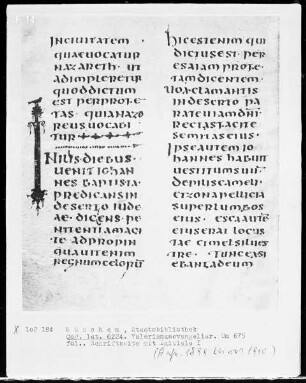 INCIUITATEM
QUAEUOCATUR
NAZARETH · UT
ADIMPLERETUR
QUODDICTUM
EST PERPROFE
TAS · QUIANAZO
REUS UOCABI
TUR
IN ILLIS · DIEBUS ·
UENIT IOHAN
NES BAPTISTA
PREDICANS IN
DESERTO IUDE
AE · DICENS · PE
NITENTIAM AG
ITE ADPROPIN
QUAUIT ENIM
REGNUM CELORUM
HIC EST ENIM QUI
DICTUS EST · PER
ESAIAM PROFE
TAM DICENTEM ·
UOX · CLAMANTIS
IN DESERTO PA
RATE UIAM DNI
RECTAS FACITE
SEMITAS EIUS ·
IPSE AUTEM IO
HANNES HABUIT
UESTITUM SUUM
DE PILIS CAMELI
ET ZONA PELLICIA
SUPER LUMBOS
EIUS · ESCA AUTEM
EIUS ERAT LOCUS
TAE ET MEL SILUES
TRE · TUNC EXSI
EBANT AD EUM
X 102 184
München, Staatsbibliothek
Cod. lat. 6224. Valerianusevangeliar. Um 675
fol., Schriftseite mit Initiale I